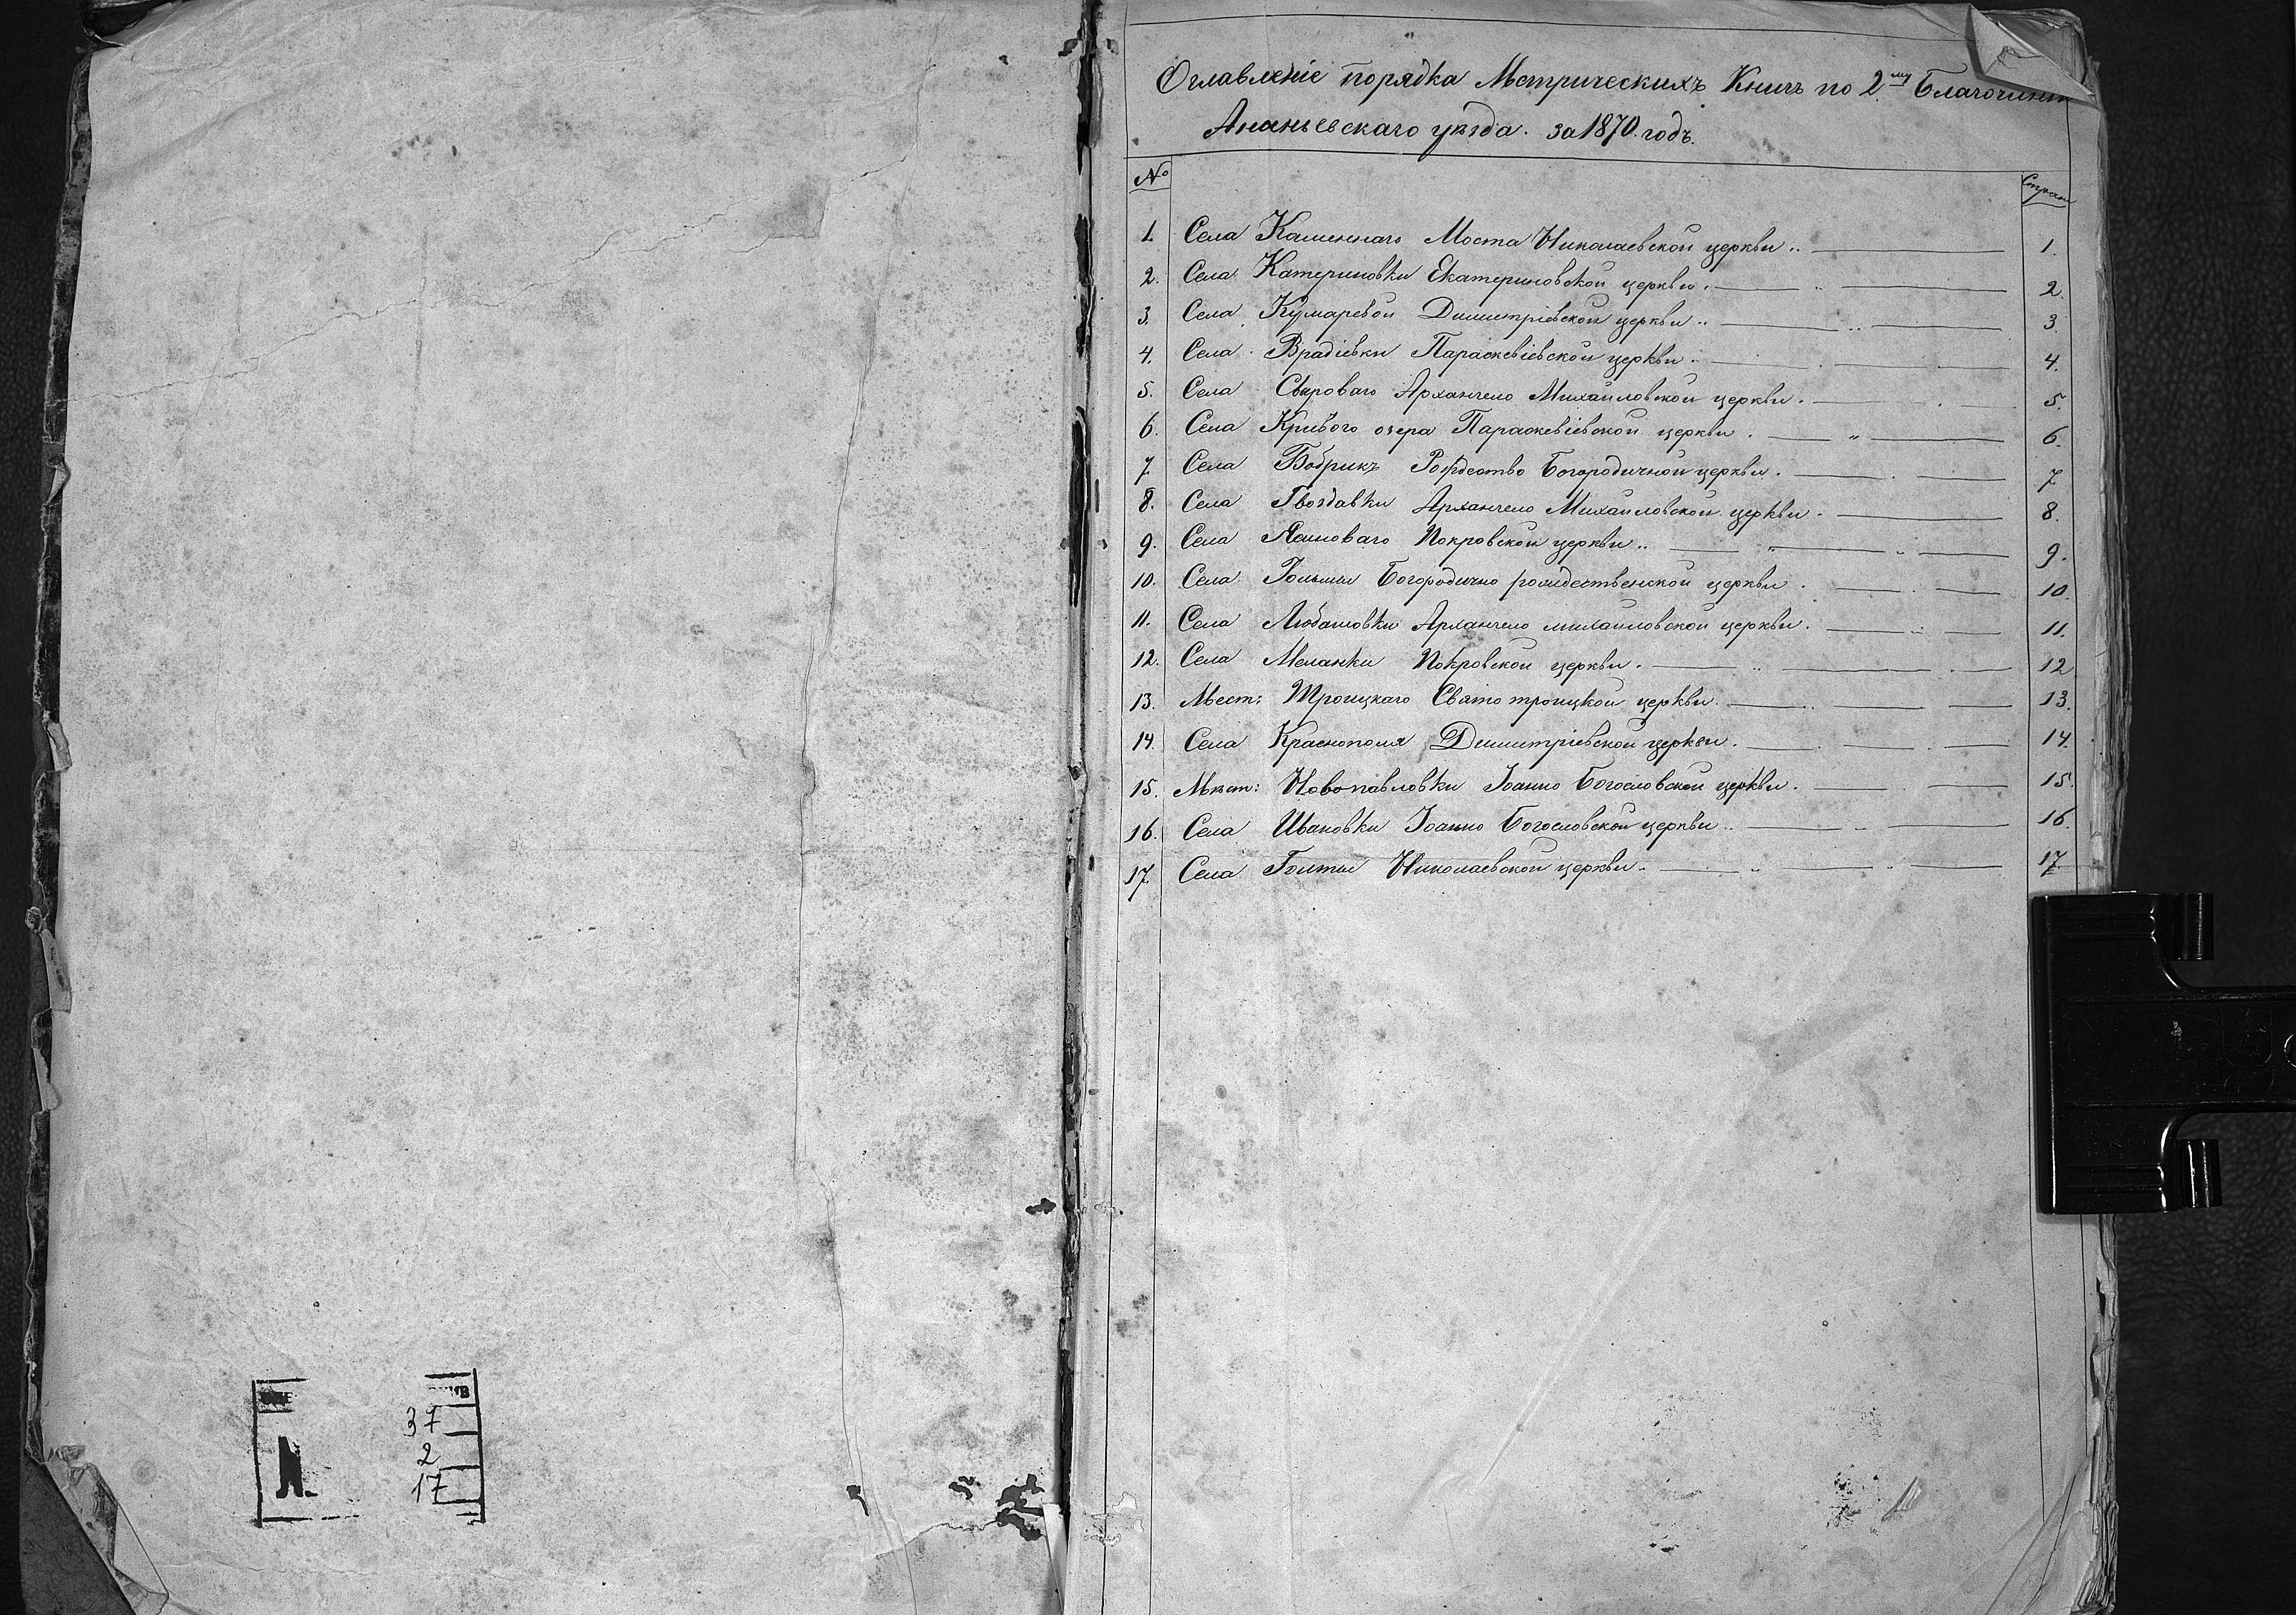 37
2
17
Оглавленіе порядка Метрическихъ Книгъ по 2му Благочинію
Ананьевскаго уѣзда. за 1870. годъ.
№ Стран
1. Села Каменнаго Моста Николаевской церкви 1.
2. Села Катериновки Екатериновской церкви. 2.
3. Села Кумаревой Димитріевской церкви 3.
4. Села Врадіевки Параскевіевской церкви. 4.
5. Села Сыроваго Архангело Михайловской церкви. 5.
6. Села Криваго озера Параскевіевской церкви. 6.
7. Села Бобрикъ Рождество Богородичной церкви. 7
8. Села Гвоздавки Архангело Михайловской церкви. 8.
9. Села Ясиноваго Покровской церкви 9.
10. Села Гольмы Богородично рождественской церкви. 10.
11. Села Любашовки Архангело михайловской церкви. 11.
12. Села Меланки Покровской церкви. 12
13. Мест: Троицкаго Свято троицкой церкви. 13.
14. Села Краснополя Димитріевской церкви. 14.
15. Мѣст: Новопавловки Іоанно Богословской церкви. 15.
16. Села Ивановки Іоанно Богословской церкви 16.
17. Села Голты Николаевской церкви. 17.